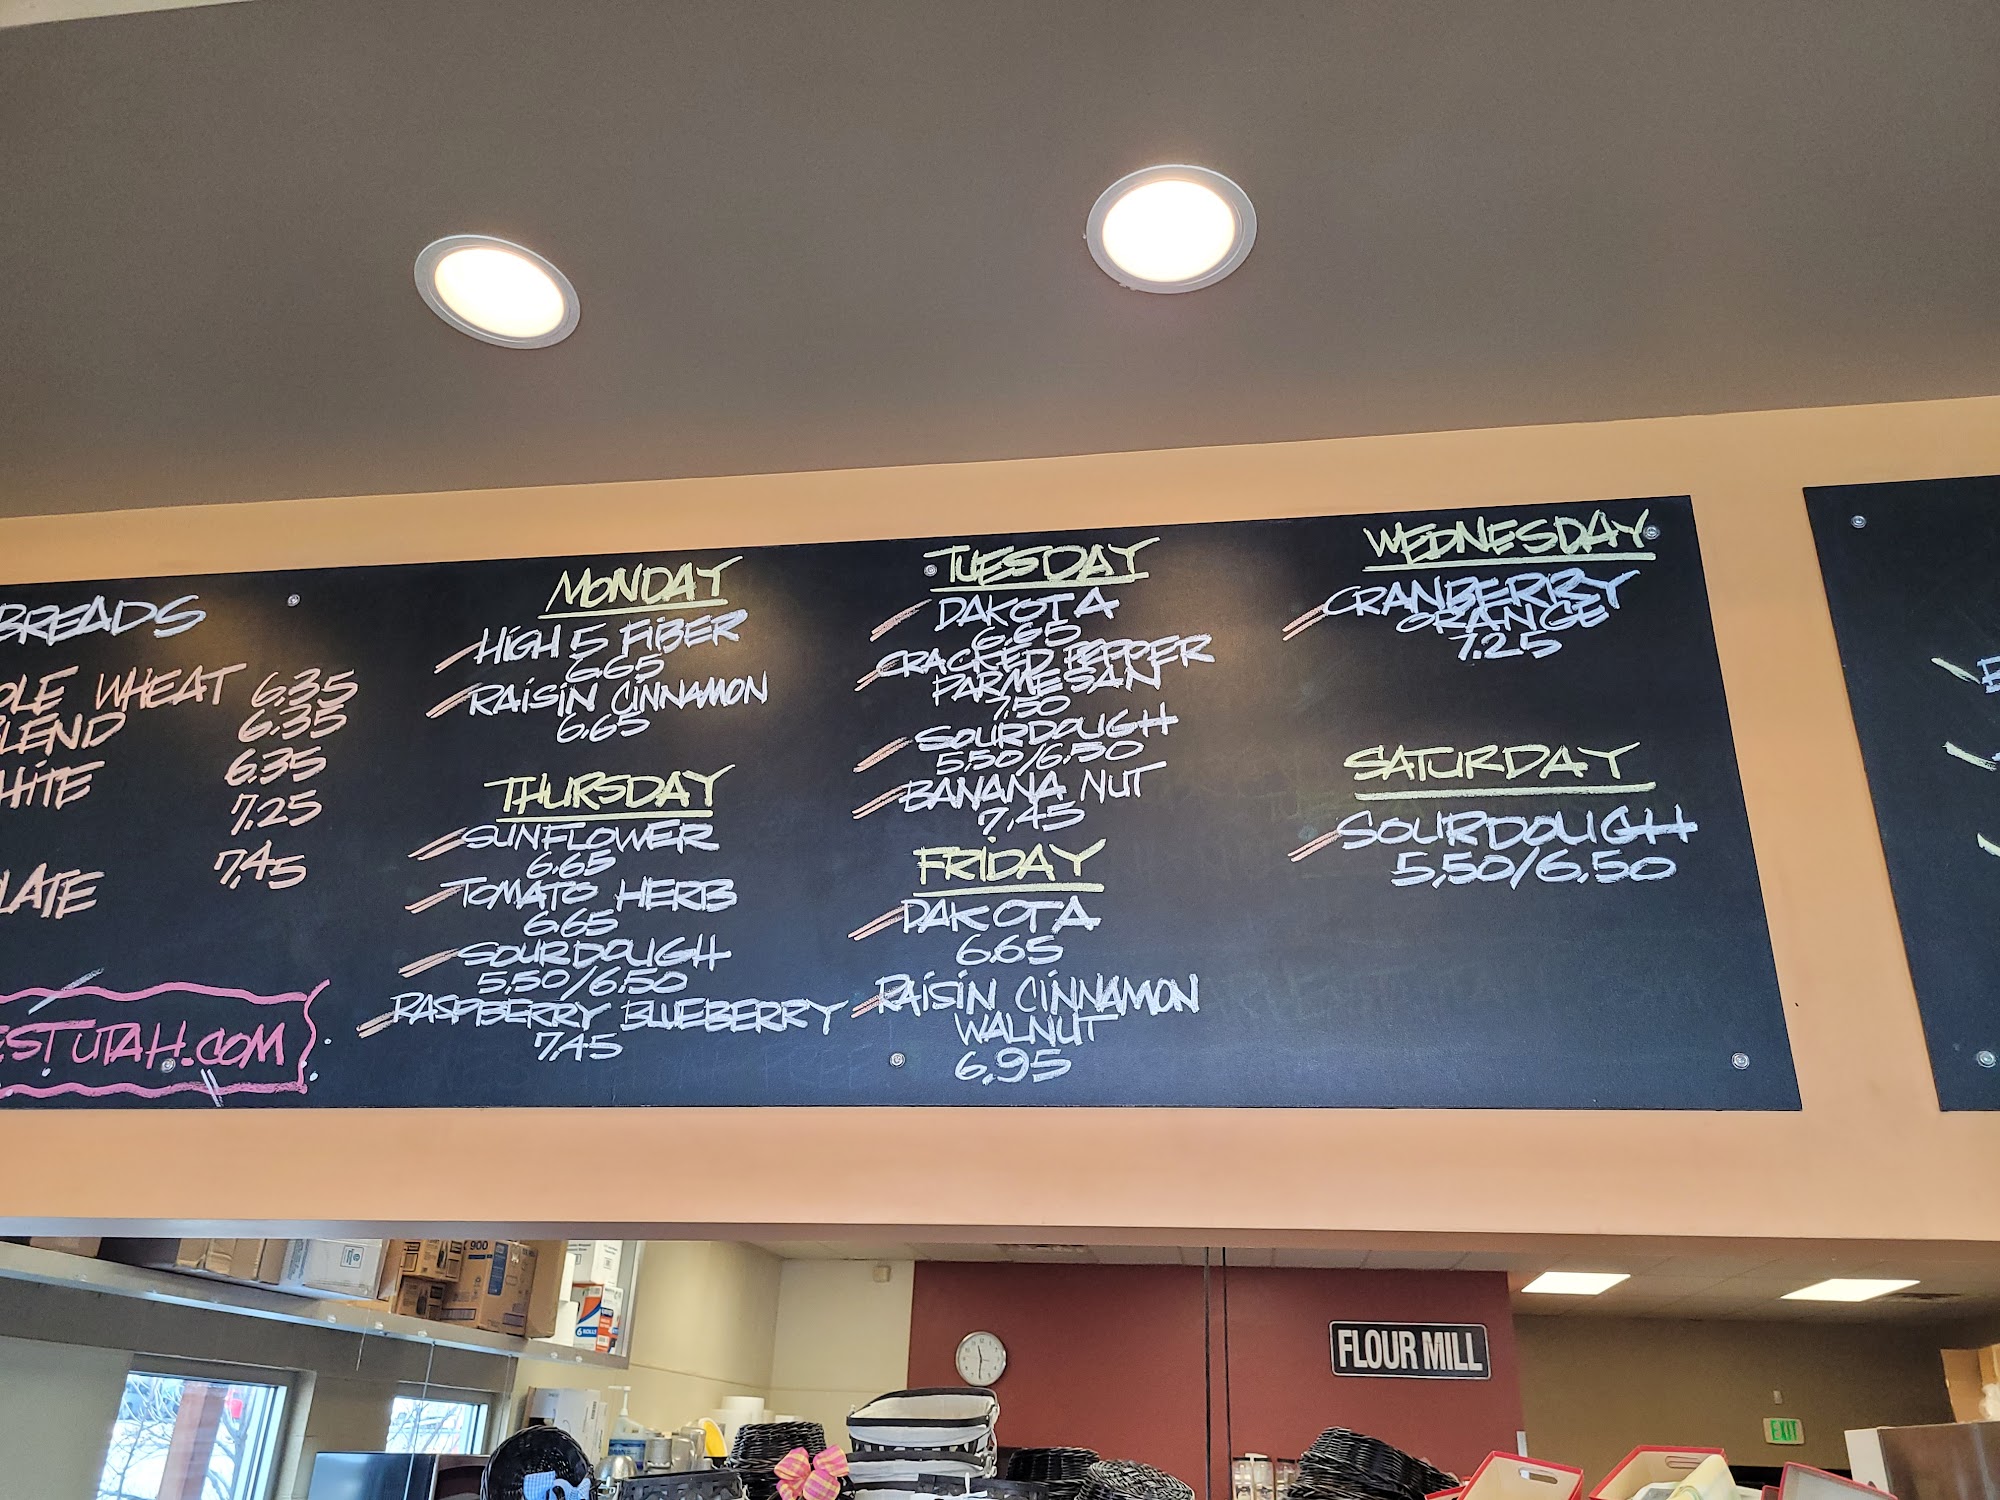 BREADS
WHEAT 6.35
6.35
6.35
7.25
7.45
UTAH.COM
MONDAY
HIGH 5 FIBER
6.65
RAISIN CINNAMON
6.65
THURSDAY
SUNFLOWER
6.65
TOMATO HERB
6.65
SOURDOUGH
5.50/6.50
RASPBERRY BLUEBERRY
7.45
TUESDAY
DAKOTA
6.65
CRACKED PEPPER
PARMESAN
7.50
SOURDOUGH
5.50/6.50
BANANA NUT
7.45
FRIDAY
DAKOTA
6.65
RAISIN CINNAMON
WALNUT
6.95
WEDNESDAY
CRANBERRY
ORANGE
7.25
SATURDAY
SOURDOUGH
5.50/6.50
900
FLOUR MILL
EXIT